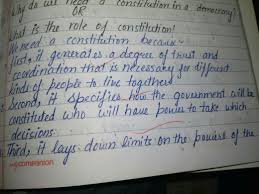 Why do we need a constitution in a democracy?
OR
What is the role of constitution?
We need a constitution because
First, it generates a degree of trust and
coordination that is necessary for different
kinds of people to live together.
Second, it specifies how the government will be
constituted who will have power to take which
decisions.
Third, it lays down limits on the powers of the
companion